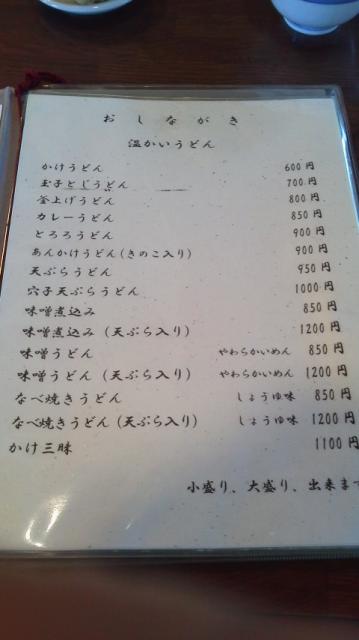 おしながき
温かいうどん
かけうどん 600円
玉子とじうどん 700円
釜上げうどん 800円
カレーうどん 850円
とろろうどん 900円
あんかけうどん(きのこ入り) 900円
天ぷらうどん 950円
穴子天ぷらうどん 1000円
味噌煮込み 850円
味噌煮込み(天ぷら入り) 1200円
味噌うどん やわらかいめん 850円
味噌うどん(天ぷら入り) やわらかいめん 1200円
なべ焼きうどん しょうゆ味 850円
なべ焼きうどん(天ぷら入り) しょうゆ味 1200円
かけ三昧 1100円
小盛り、大盛り、出来ます